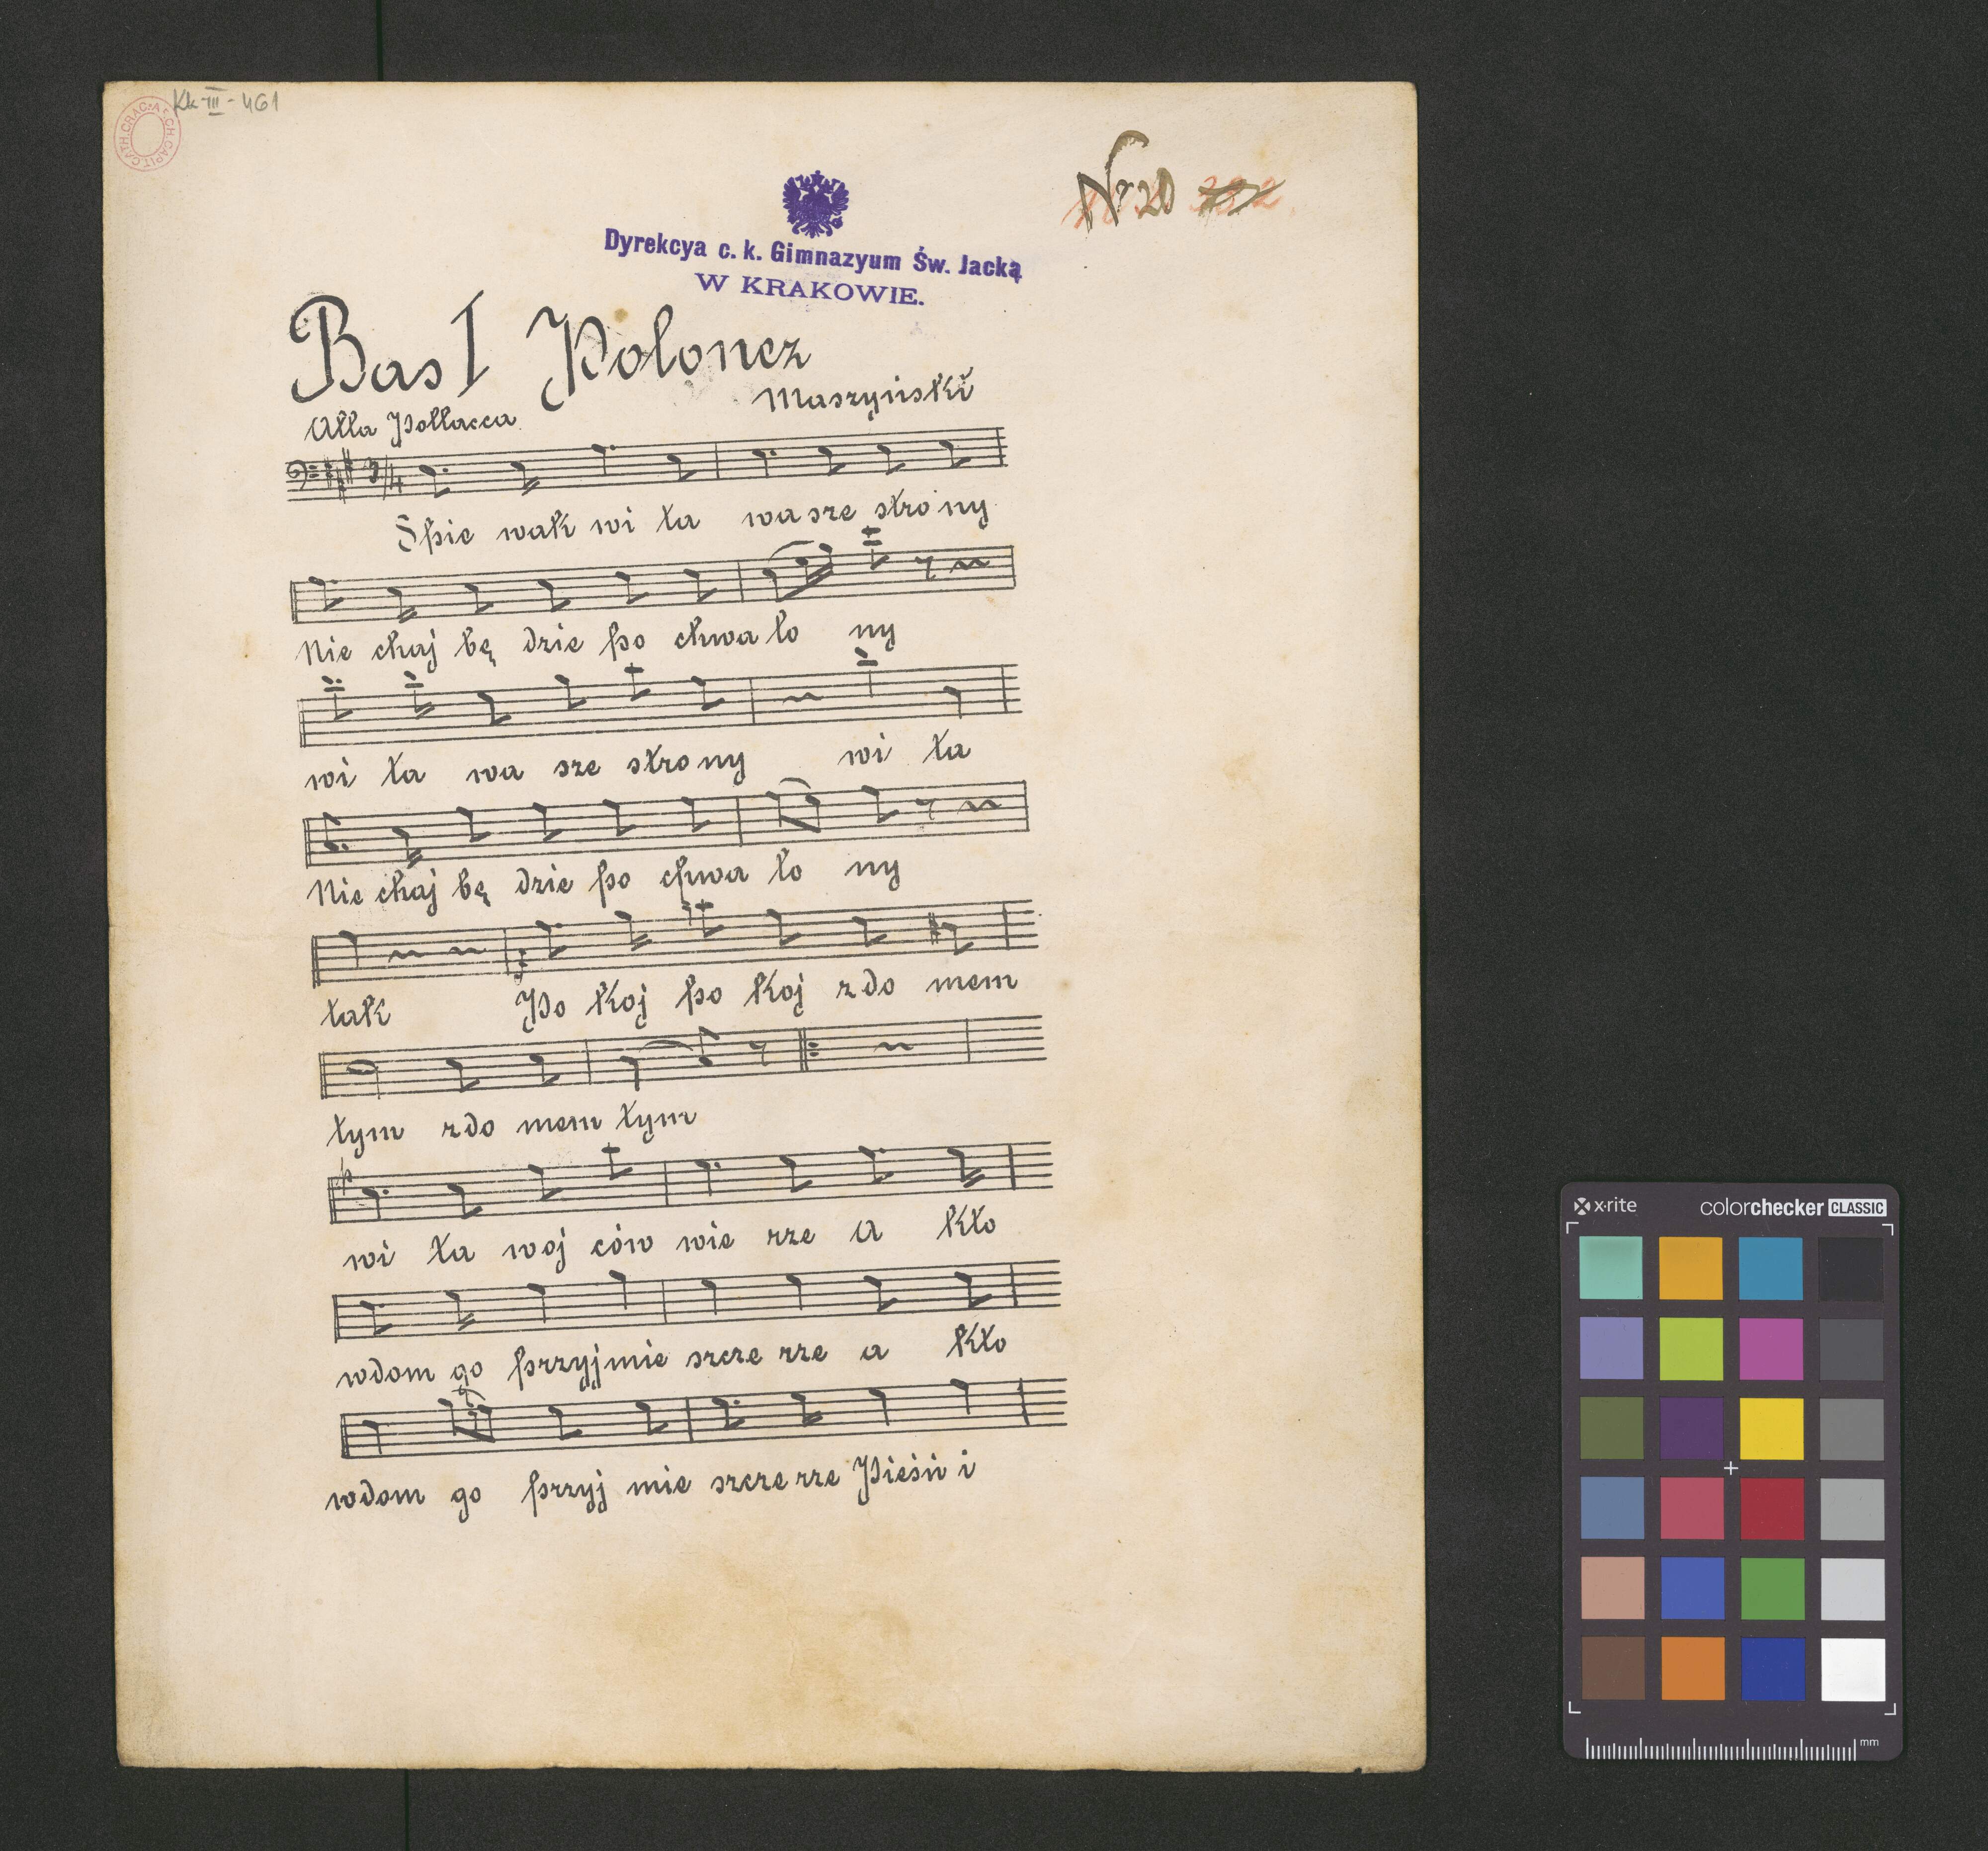 Kk-III-461
ARCH. CAPIT. CATH. CRAC.
Nr 20
Dyrekcya c. k. Gimnazyum Św. Jacka
W KRAKOWIE.
Bas I Polonez
Maszyński
Alla Pollacca
Śpie wak wi ta wa sze stro ny
Nie chaj bę dzie po chwa lo ny
wi ta wa sze stro ny wi ta
Nie chaj bę dzie po chwa lo ny
tak Po koj po koj z do mem
tym z do mem tym
wi ta woj ców wie rze a kto
w dom go przyj mie szcze rze a kto
w dom go przyj mie szcze rze Pieśń i
x-rite colorchecker CLASSIC
mm